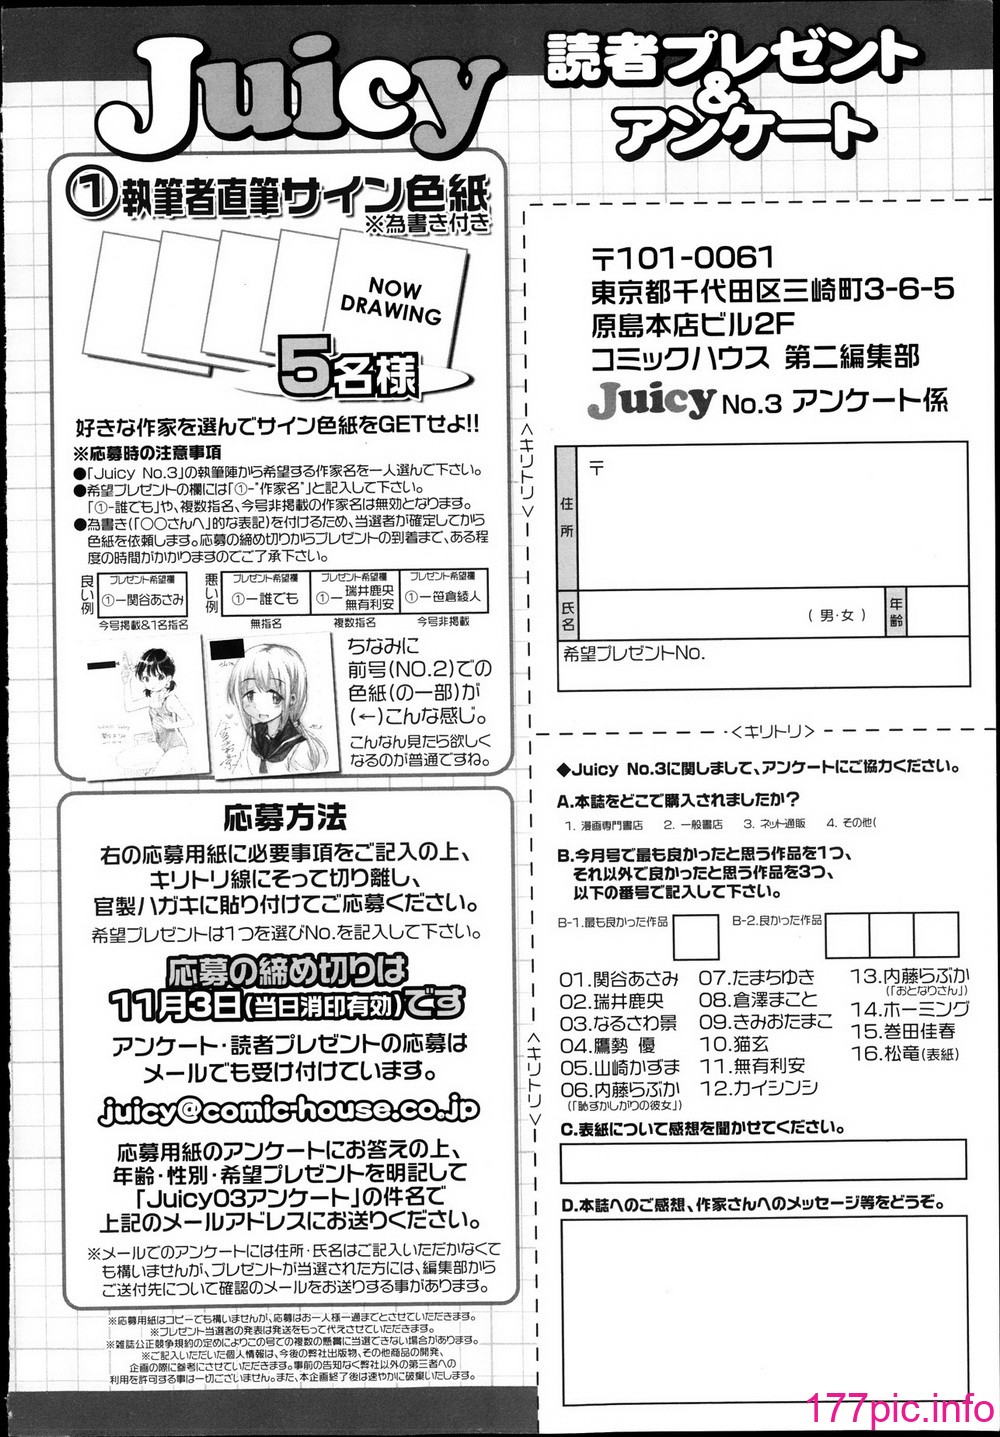 Juicy
読者プレゼント
&
アンケート
①執筆者直筆サイン色紙
※為書き付き
NOW
DRAWING
5名様
好きな作家を選んでサイン色紙をGETせよ!!
※応募時の注意事項
●「Juicy No.3」の執筆陣から希望する作家名を一人選んで下さい。
●希望プレゼントの欄には「①-"作家名"」と記入して下さい。
「①-誰でも」や、複数指名、今号非掲載の作家名は無効となります。
●為書き(「〇〇さんへ」的な表記)を付けるため、当選者が確定してから
色紙を依頼します。応募の締め切りからプレゼントの到着まで、ある程
度の時間がかかりますのでご了承下さい。
良い例
プレゼント希望欄
①ー関谷あさみ
今号掲載&1名指名
悪い例
プレゼント希望欄
①ー誰でも
無指名
プレゼント希望欄
①ー瑞井鹿央
無有利安
複数指名
プレゼント希望欄
①ー笹倉綾人
今号非掲載
ちなみに
前号(NO.2)での
色紙(の一部)が
(←)こんな感じ。
こんなん見たら欲しく
なるのが普通ですね。
応募方法
右の応募用紙に必要事項をご記入の上、
キリトリ線にそって切り離し、
官製ハガキに貼り付けてご応募ください。
希望プレゼントは1つを選びNo.を記入して下さい。
応募の締め切りは
11月3日(当日消印有効)です
アンケート・読者プレゼントの応募は
メールでも受け付けています。
juicy@comic-house.co.jp
応募用紙のアンケートにお答えの上、
年齢・性別・希望プレゼントを明記して
「Juicy03アンケート」の件名で
上記のメールアドレスにお送りください。
※メールでのアンケートには住所・氏名はご記入いただかなくて
も構いませんが、プレゼントが当選された方には、編集部から
ご送付先について確認のメールをお送りする事があります。
※応募用紙はコピーでも構いませんが、応募はお一人様一通までとさせていただきます。
※プレゼント当選者の発表は発送をもって代えさせていただきます。
※雑誌公正競争規約の定めによりこの号での複数の懸賞に当選できない場合があります。
※ご記入いただいた個人情報は、今後の弊社出版物、その他商品の開発、
企画の際に参考にさせていただきます。事前の告知なく弊社以外の第三者への
利用を許可する事は一切ございません。また、本企画終了後は速やかに破棄いたします。
〒101-0061
東京都千代田区三崎町3-6-5
原島本店ビル2F
コミックハウス 第二編集部
Juicy No.3 アンケート係
<キリトリ>
〒
住所
氏名
(男・女)
年齢
希望プレゼントNo.
<キリトリ>
◆Juicy No.3に関しまして、アンケートにご協力ください。
A.本誌をどこで購入されましたか?
1. 漫画専門書店 2. 一般書店 3. ネット通販 4. その他(
B.今月号で最も良かったと思う作品を1つ、
それ以外で良かったと思う作品を3つ、
以下の番号で記入して下さい。
B-1.最も良かった作品
B-2.良かった作品
01.関谷あさみ
02.瑞井鹿央
03.なるさわ景
04.鷹勢 優
05.山崎かずま
06.内藤らぶか
(「恥ずかしがりの彼女」)
07.たまちゆき
08.倉澤まこと
09.きみおたまこ
10.猫玄
11.無有利安
12.カイシンシ
13.内藤らぶか
(「おとなりさん」)
14.ホーミング
15.巻田佳春
16.松竜(表紙)
<キリトリ>
C.表紙について感想を聞かせてください。
D.本誌へのご感想、作家さんへのメッセージ等をどうぞ。
177pic.info